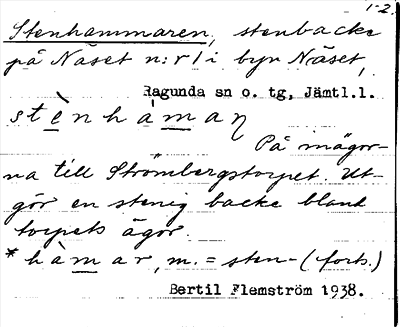 1-2.
Stenhammaren, stenbacke
på Näset n:r 1 i byn Näset,
Ragunda sn o. tg, Jämtl.l.
stènhàmaŋ
På mägor-
na till Strömbergstorpet. Ut-
gör en stenig backe bland
torpets ägor.
* hàmar, m. = sten- (forts.)
Bertil Flemström 1938.